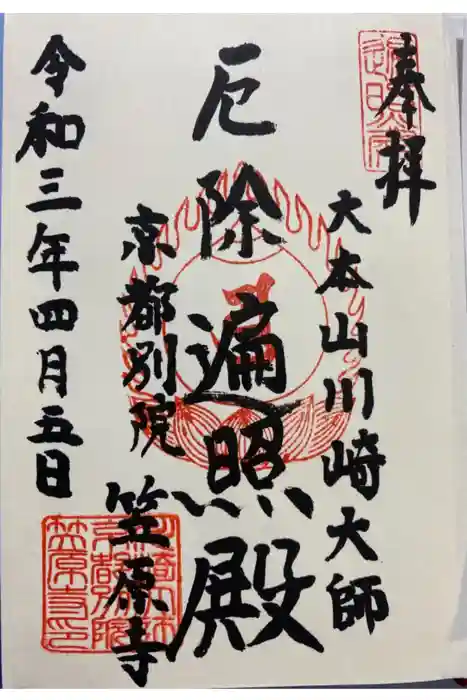 奉拝
大本山川崎大師
厄除遍照殿
京都別院
笠原寺
令和三年四月五日